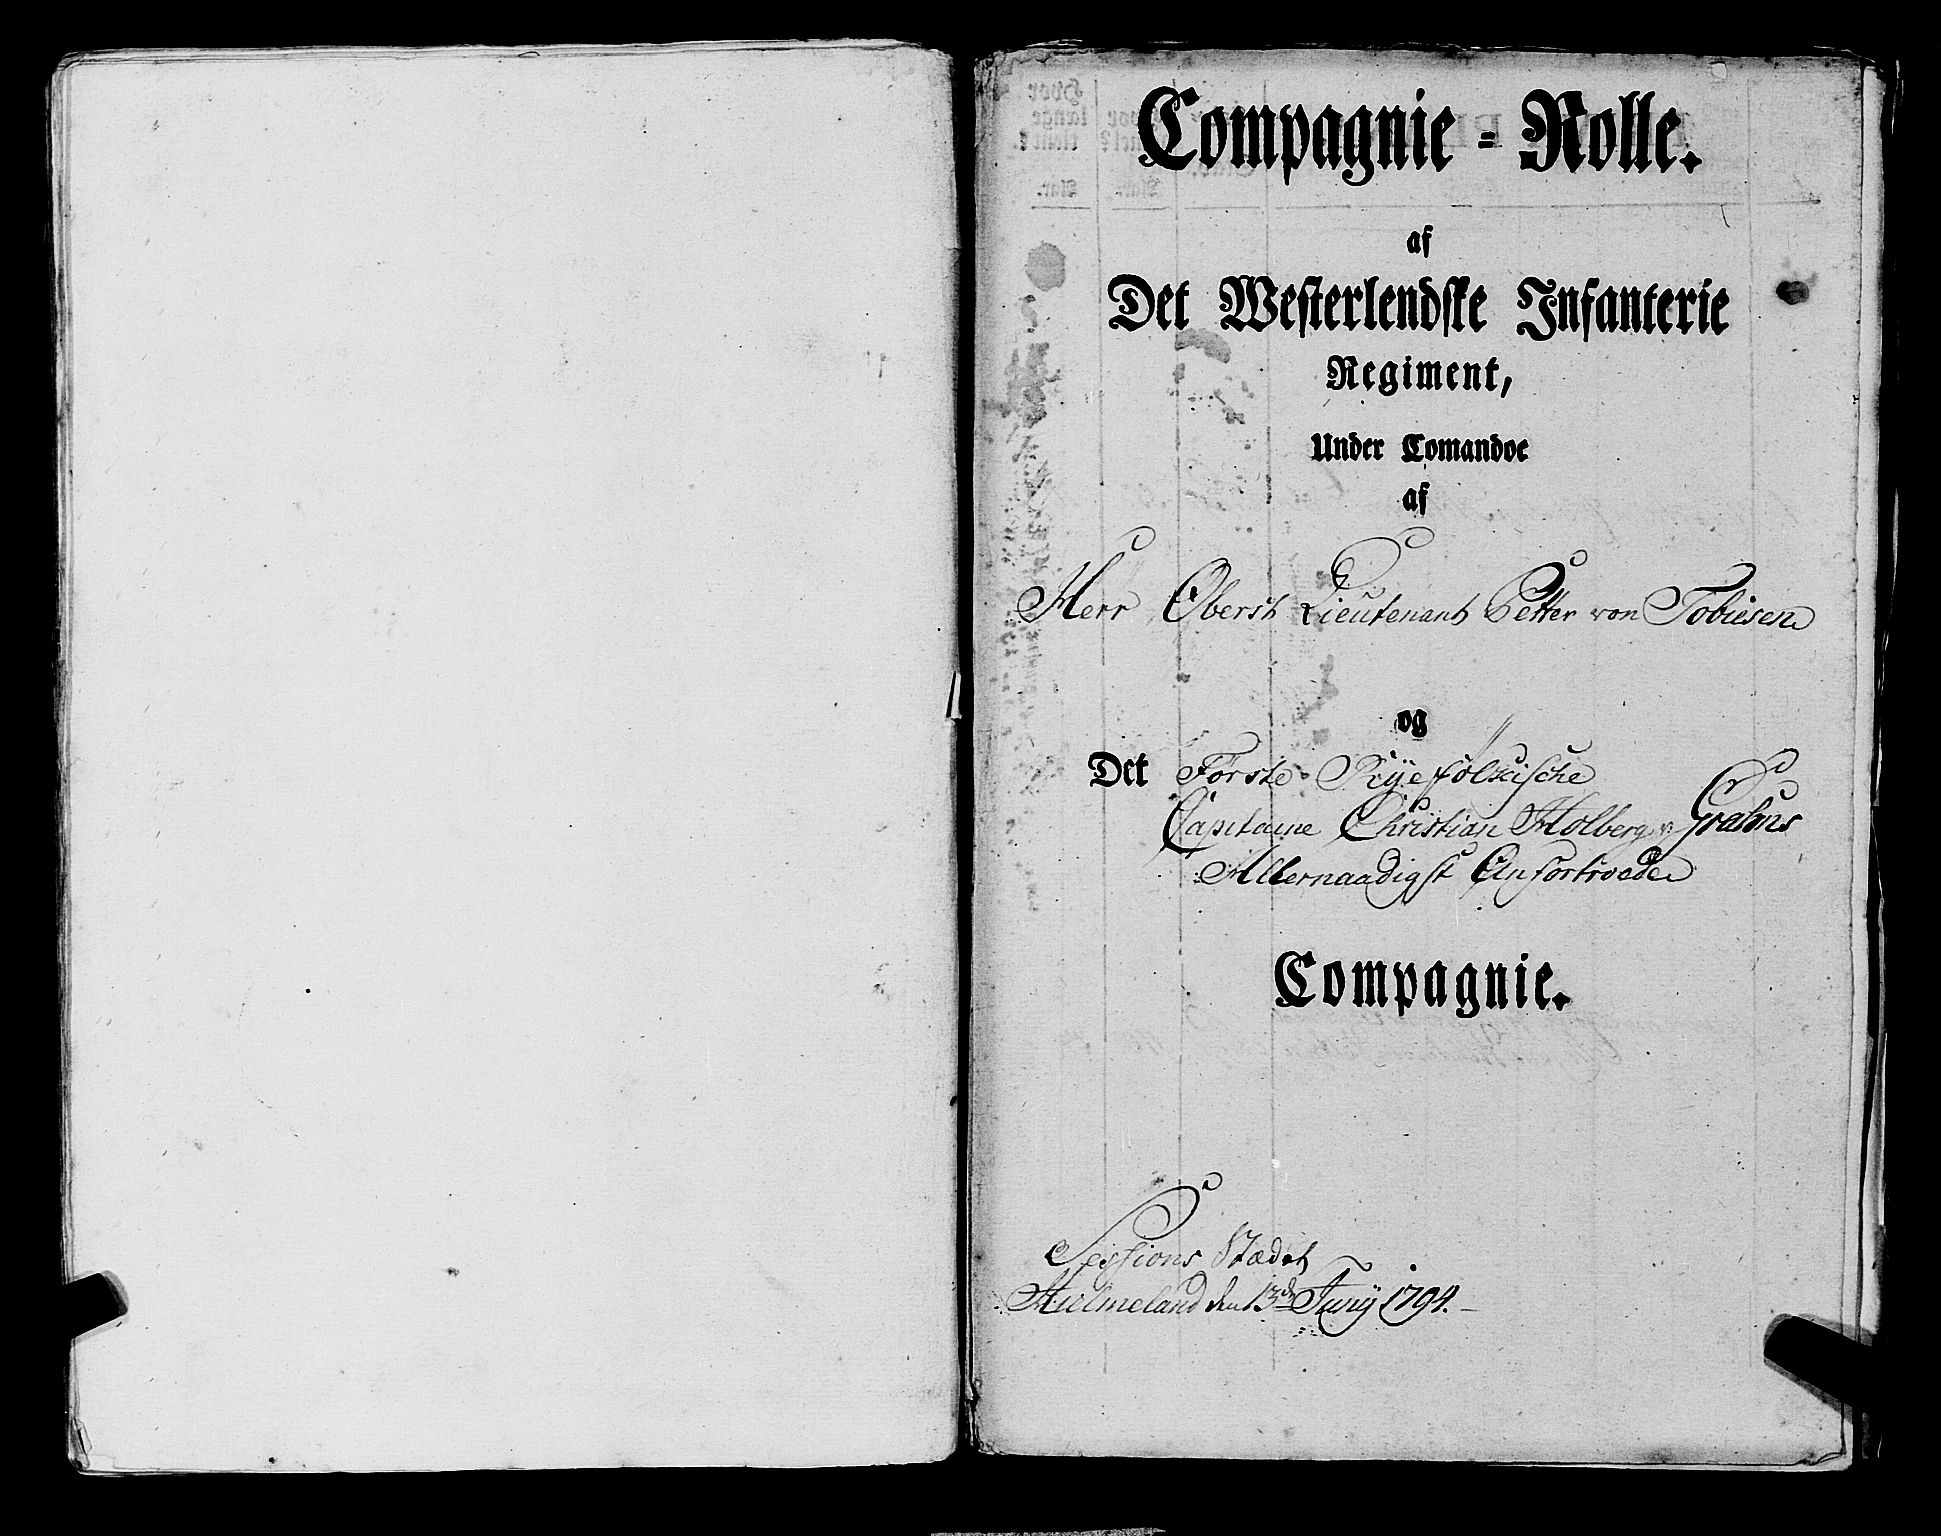 Compagnie = Rolle.
af
Det Westerlendske Infanterie
Regiment,
Under Comandoe
af
Herr Oberst Lieutenant Petter von Tobiesen
og
Det Første Ryefølckische
Capitaine Christian Holberg v: Grabous
Allernaadigst Anfortroede
Compagnie.
Sessions Stædet
Hielmeland den 13de Juny 1794.